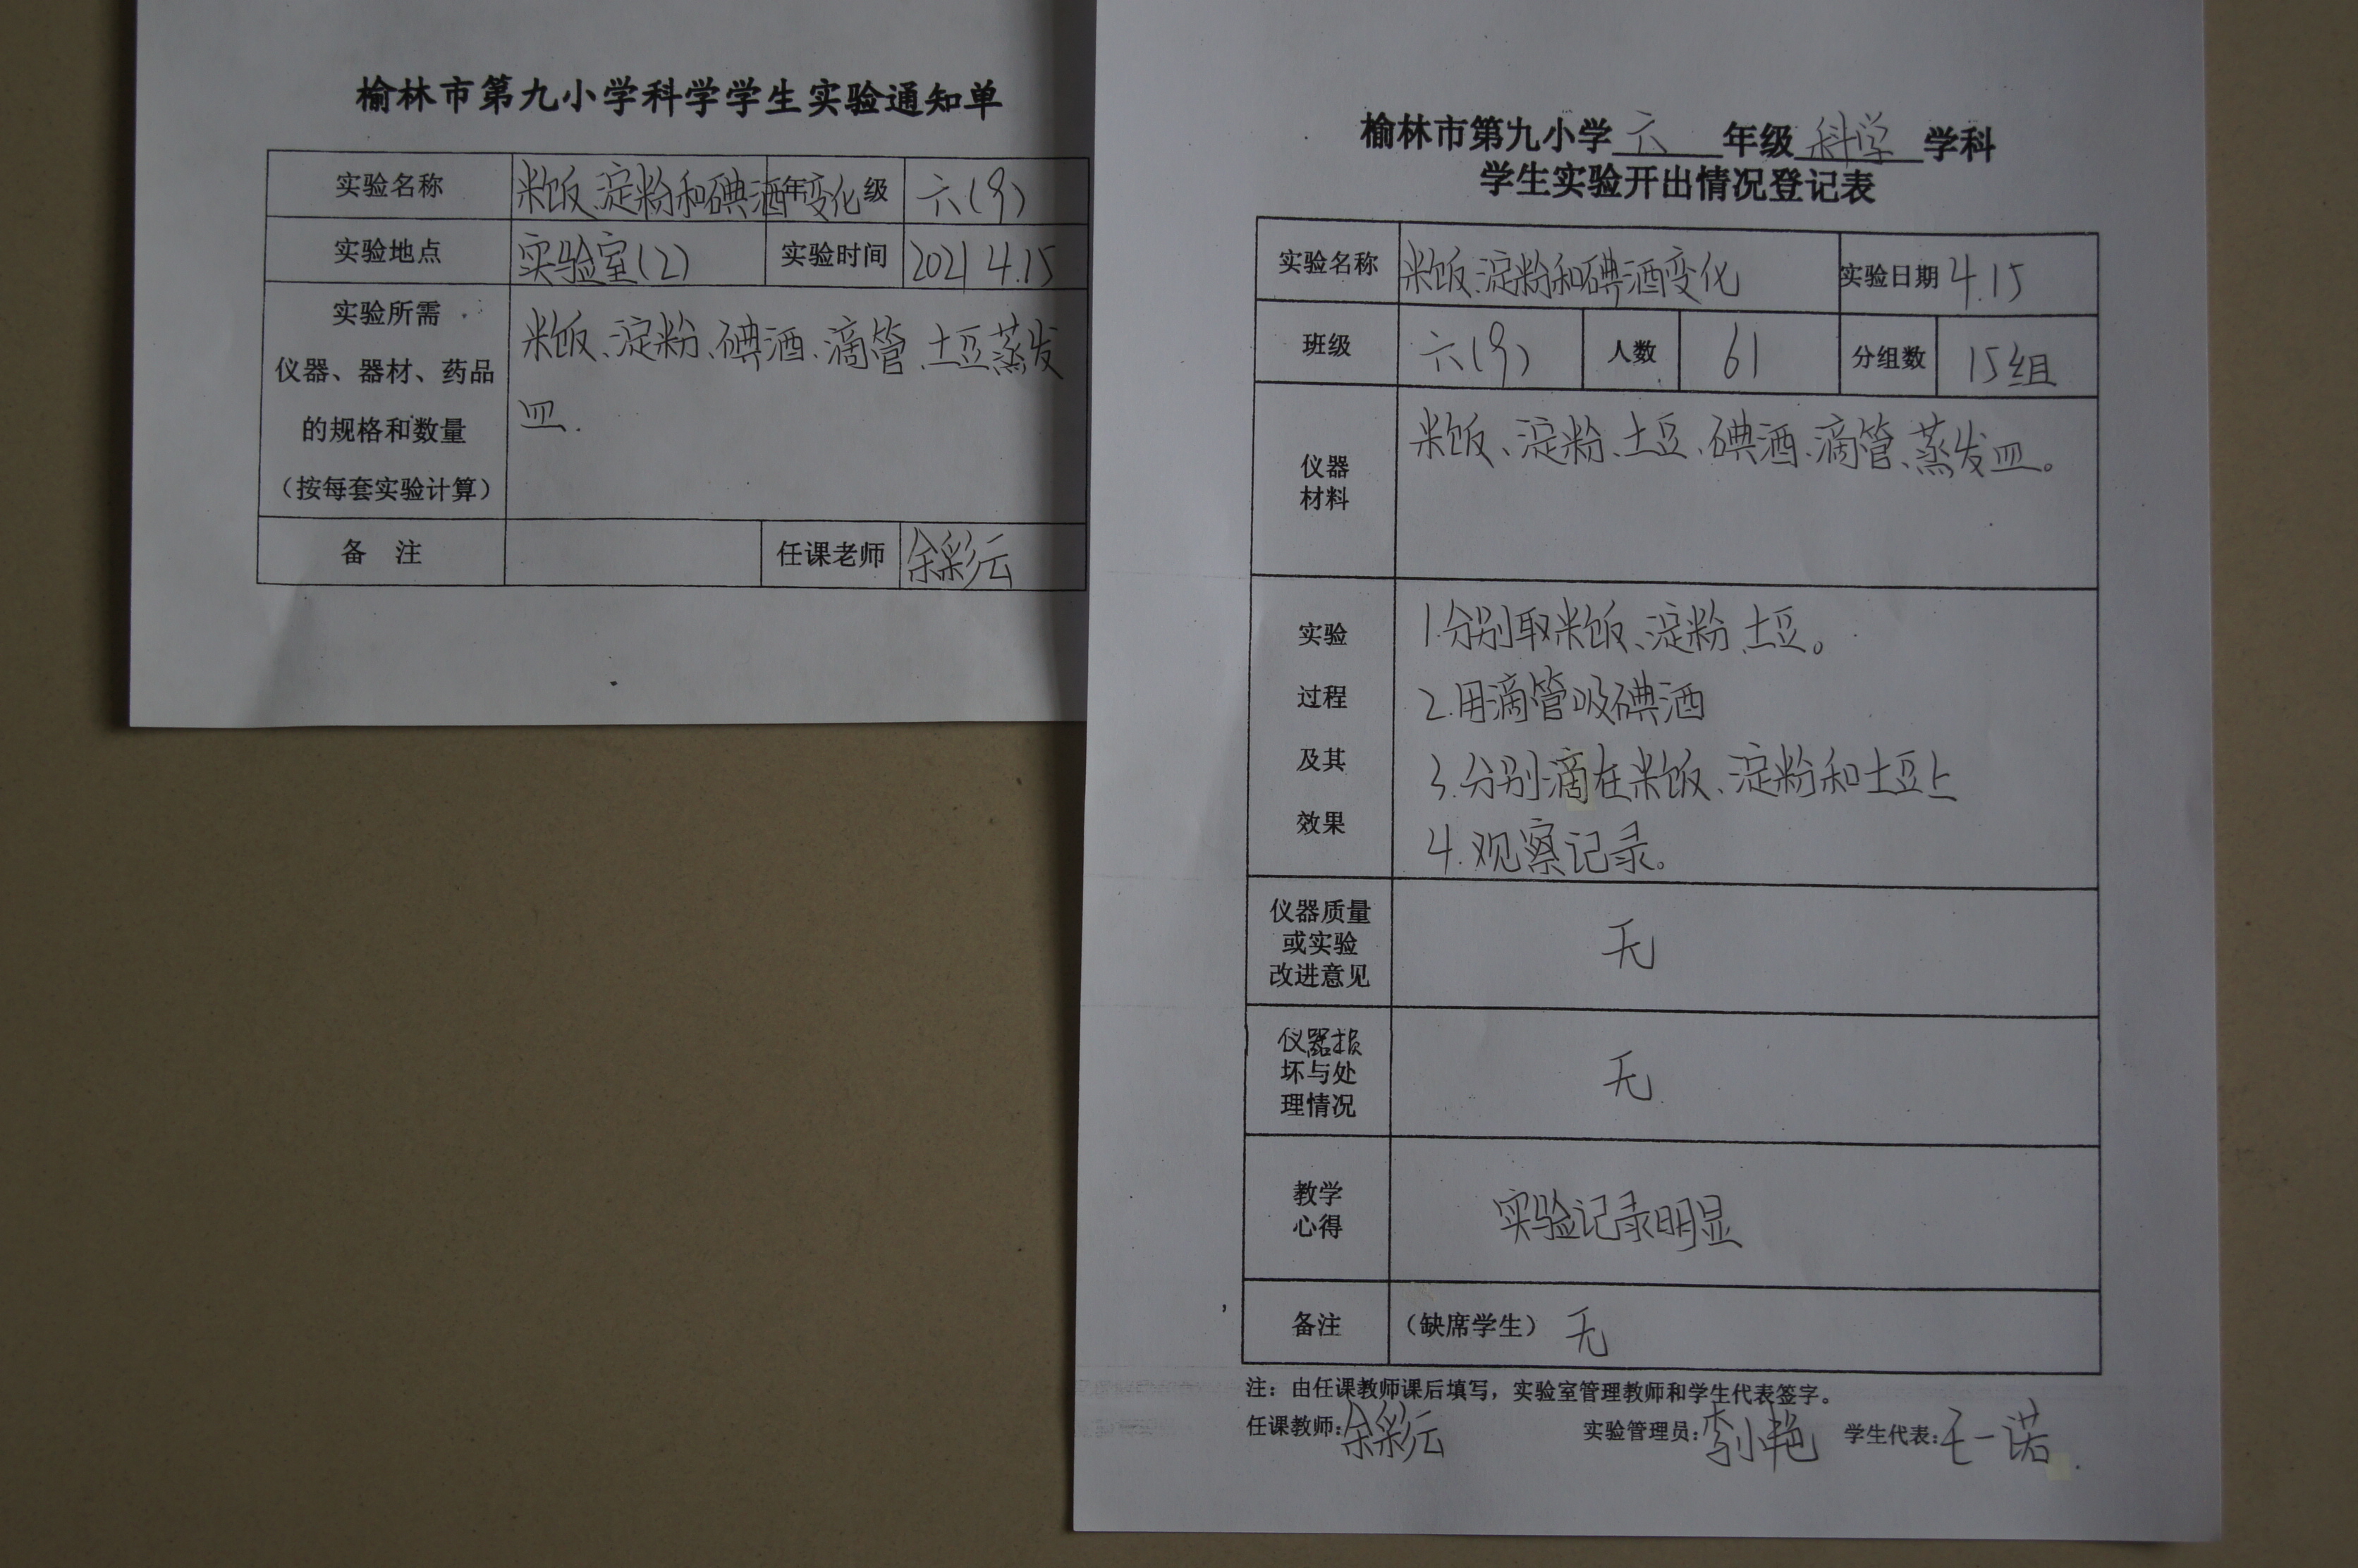 榆林市第九小学科学学生实验通知单
实验名称 米饭、淀粉和碘酒变化 年级 六(9)
实验地点 实验室(2) 实验时间 2021 4.15
实验所需
仪器、器材、药品
的规格和数量
(按每套实验计算)
米饭、淀粉、碘酒、滴管、土豆蒸发
皿.
备 注 任课老师 余彩云
榆林市第九小学 六 年级 科学 学科
学生实验开出情况登记表
实验名称 米饭、淀粉和碘酒变化 实验日期 4.15
班级 六(9) 人数 61 分组数 15组
仪器
材料
米饭、淀粉、土豆、碘酒、滴管、蒸发皿。
实验
过程
及其
效果
1.分别取米饭、淀粉、土豆。
2.用滴管吸碘酒
3.分别滴在米饭、淀粉和土豆上
4.观察记录。
仪器质量
或实验
改进意见
无
仪器损
坏与处
理情况
无
教学
心得
实验记录明显
备注 (缺席学生) 无
注：由任课教师课后填写，实验室管理教师和学生代表签字。
任课教师:余彩云 实验管理员:李小艳 学生代表:王一诺